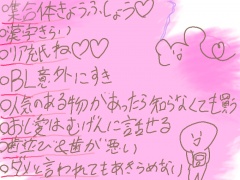 ○集合体きょうふしょう♡
○漢字きらい
○リア氏ね♡♡
○BL意外にすき
○人気のある物があったら知らなくても買う
○おし愛はむげんに話せる
○歯が悪い
○ダメと言われてもあきらめない